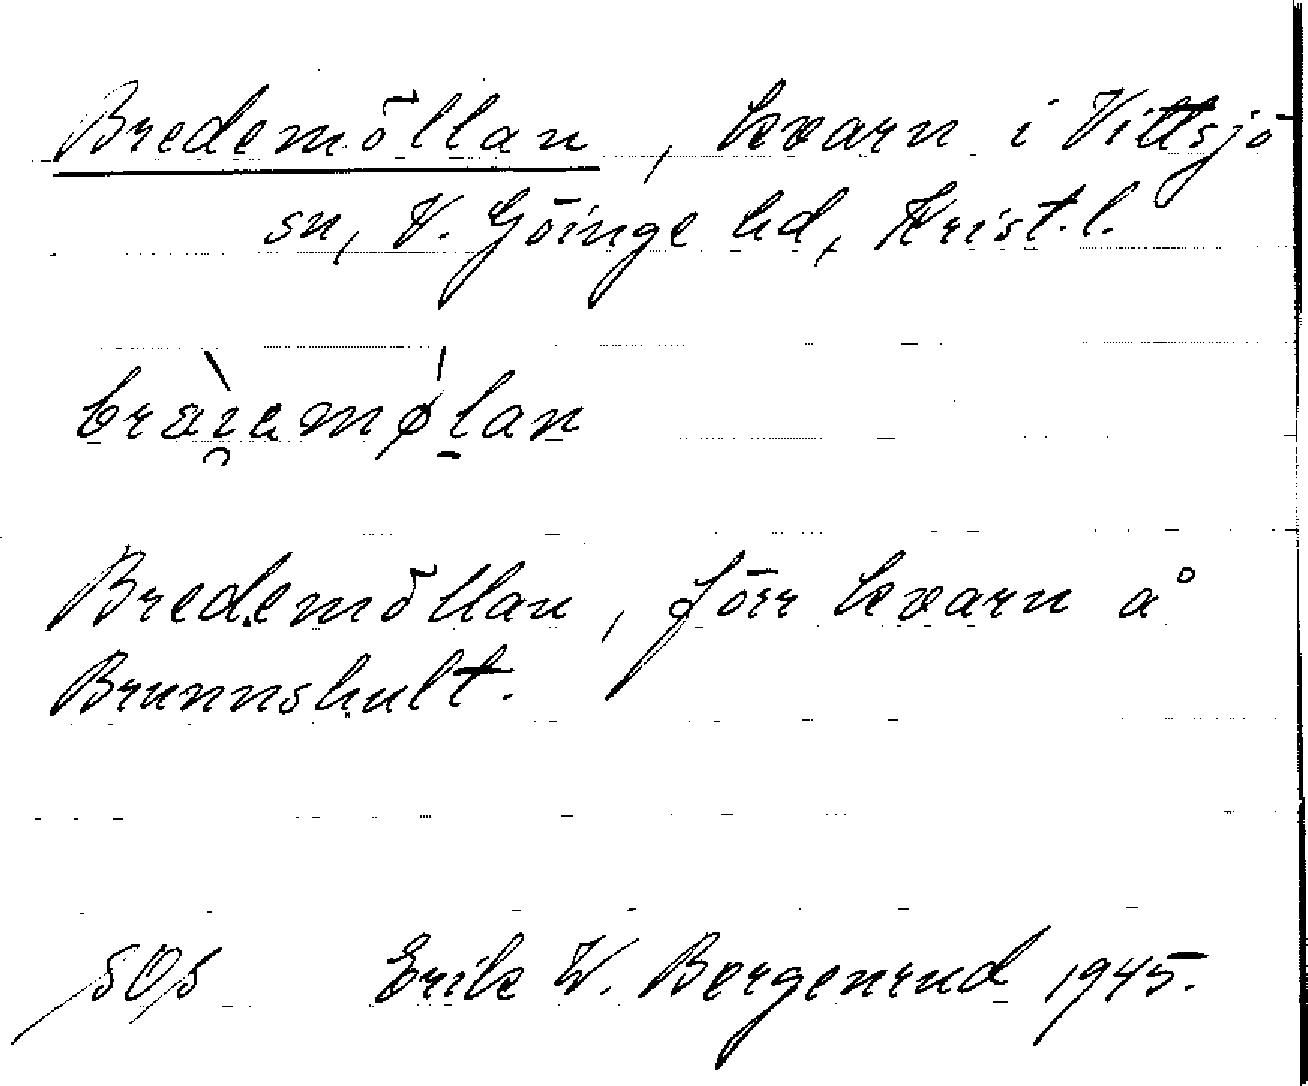 Bredemöllan, kvarn i Vittsjö
sn, V. Göinge hd, Krist. l.
Bredemöllan, förr kvarn å
Brunnshult.
SOS Erik W. Bergenrud 1945.